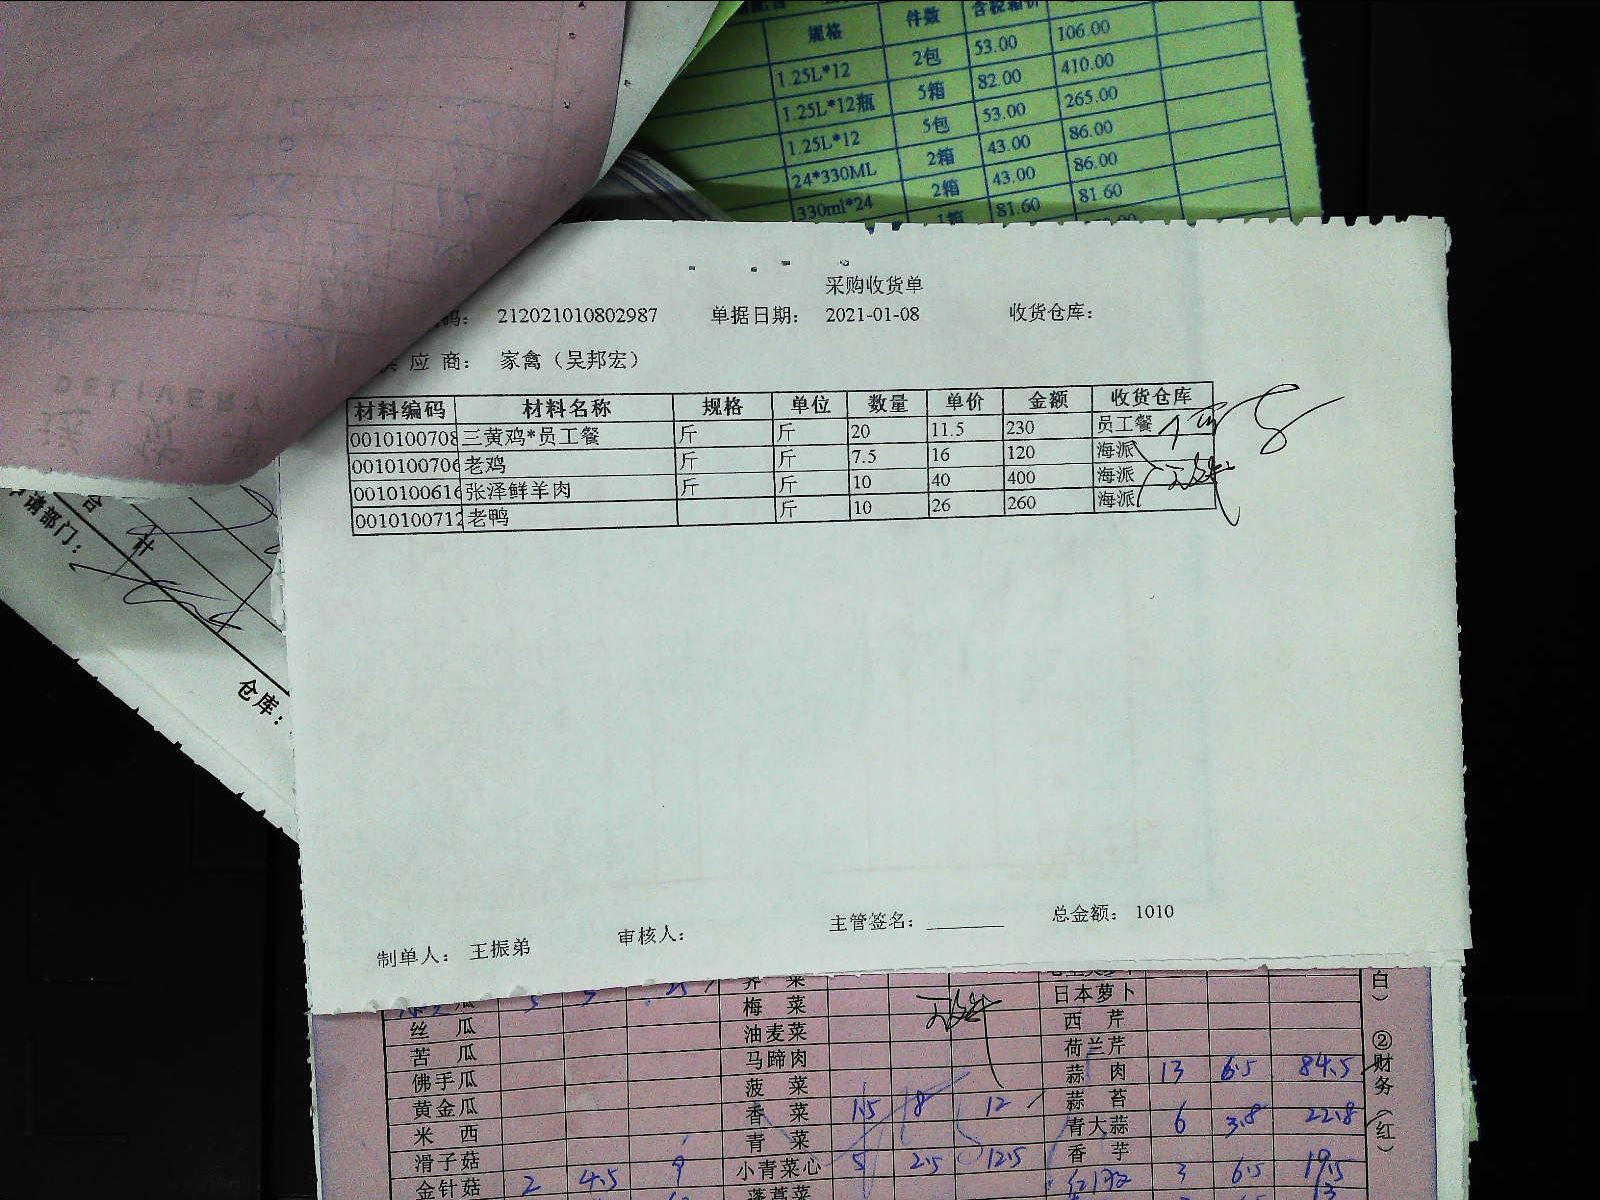 规格 件数 含税箱价
1.25L*12 2包 53.00 106.00
1.25L*12瓶 5箱 82.00 410.00
1.25L*12 5包 53.00 265.00
24*330ML 2箱 43.00 86.00
330ml*24 2箱 43.00 86.00
1箱 81.60 81.60
采购收货单
码： 212021010802987 单据日期： 2021-01-08 收货仓库：
应 商： 家禽（吴邦宏）
材料编码 材料名称 规格 单位 数量 单价 金额 收货仓库
0010100708 三黄鸡*员工餐 斤 斤 20 11.5 230 员工餐
0010100706 老鸡 斤 斤 7.5 16 120 海派
0010100616 张泽鲜羊肉 斤 斤 10 40 400 海派
0010100712 老鸭 斤 10 26 260 海派
DELIVERY
送 货 单
合 计
申请部门：
仓库：
制单人： 王振弟 审核人： 主管签名： 总金额： 1010
梅 菜 日本萝卜
丝 瓜 油麦菜 西 芹
苦 瓜 马蹄肉 荷兰芹
佛手瓜 菠 菜 蒜 肉 13 6.5 84.5
黄金瓜 香 菜 1.5 8 12 蒜 苔
米 西 青 菜 青大蒜 6 3.8 22.8
滑子菇 9 小青菜心 5 2.5 12.5 香 芋
金针菇 2 4.5 蓬蒿菜 3 6.5 19.5
白）
②财务（红）